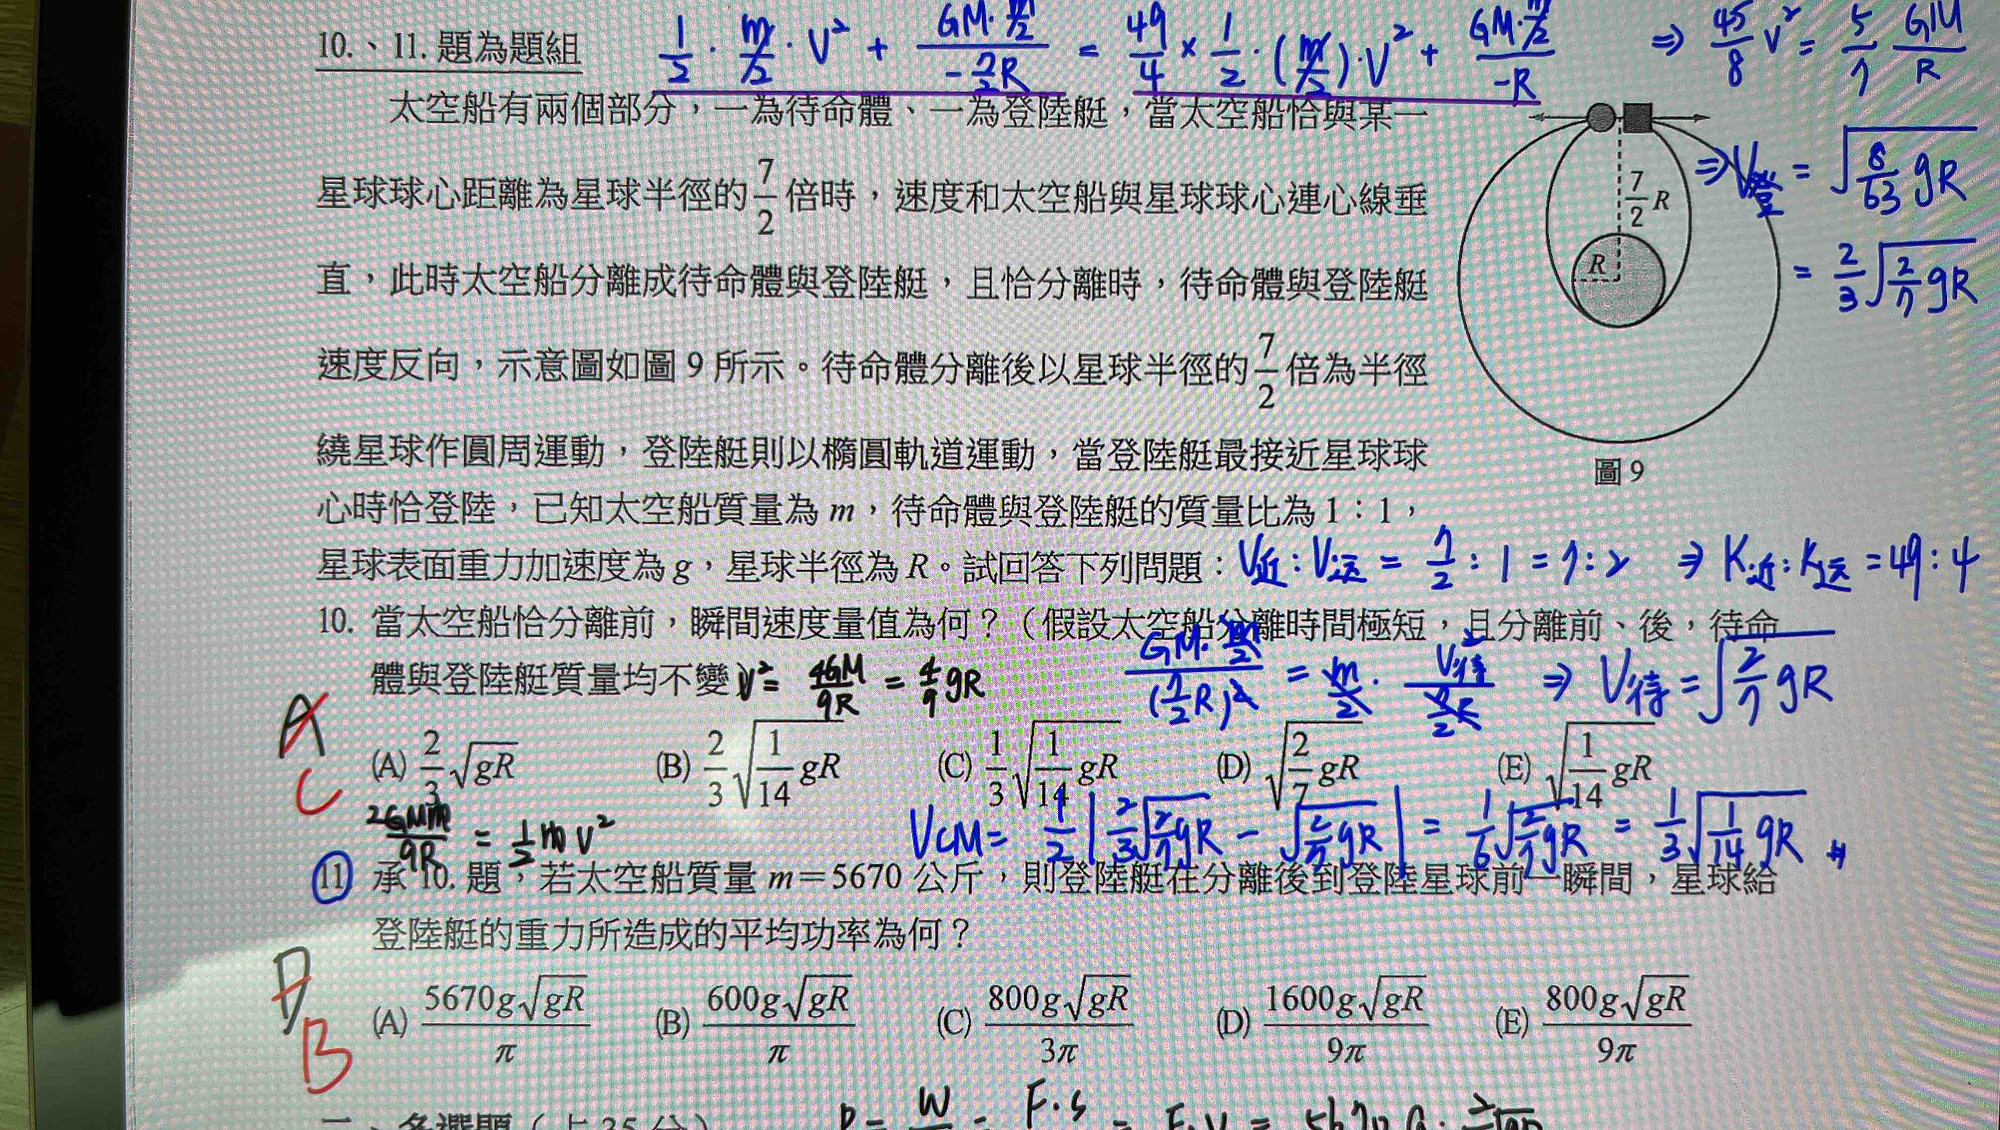 10.、11. 題為題組
1/2 · m/2 · V² + GM·m/2 / -7/2R = 49/4 × 1/2 · (m/2)·V² + GM·m/2 / -R ⇒ 45/8 V² = 5/7 GM/R
太空船有兩個部分，一為待命體、一為登陸艇，當太空船恰與某一
星球球心距離為星球半徑的 7/2 倍時，速度和太空船與星球球心連心線垂
直，此時太空船分離成待命體與登陸艇，且恰分離時，待命體與登陸艇
速度反向，示意圖如圖 9 所示。待命體分離後以星球半徑的 7/2 倍為半徑
繞星球作圓周運動，登陸艇則以橢圓軌道運動，當登陸艇最接近星球球
心時恰登陸，已知太空船質量為 m，待命體與登陸艇的質量比為 1：1，
星球表面重力加速度為 g，星球半徑為 R。試回答下列問題：
7/2 R
R
圖 9
⇒ V登 = √(8/63 gR)
= 2/3 √(2/7 gR)
V近 : V遠 = 7/2 : 1 = 7 : 2 ⇒ K近 : K遠 = 49 : 4
10. 當太空船恰分離前，瞬間速度量值為何？（假設太空船分離時間極短，且分離前、後，待命
體與登陸艇質量均不變）
V² = 4GM/9R = 4/9 gR
GM·m/2 / (7/2R)² = m/2 · V待² / 7/2R ⇒ V待 = √(2/7 gR)
A
C
(A) 2/3 √gR (B) 2/3 √(1/14 gR) (C) 1/3 √(1/14 gR) (D) √(2/7 gR) (E) √(1/14 gR)
2GMm/9R = 1/2 m V²
VCM = 1/2 | 2/3 √(2/7 gR) - √(2/7 gR) | = 1/6 √(2/7 gR) = 1/3 √(1/14 gR) #
11 承 10. 題，若太空船質量 m＝5670 公斤，則登陸艇在分離後到登陸星球前一瞬間，星球給
登陸艇的重力所造成的平均功率為何？
B
(A) 5670g√gR/π (B) 600g√gR/π (C) 800g√gR/3π (D) 1600g√gR/9π (E) 800g√gR/9π
二、多選題（占 35 分）
P = W = F·s = F·V = 5670 g ·